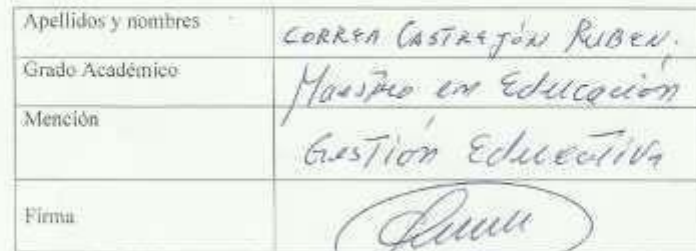 Apellidos y nombres CORREA CASTREJÓN RUBEN.
Grado Académico Maestro en Educación
Mención Gestión Educativa
Firma